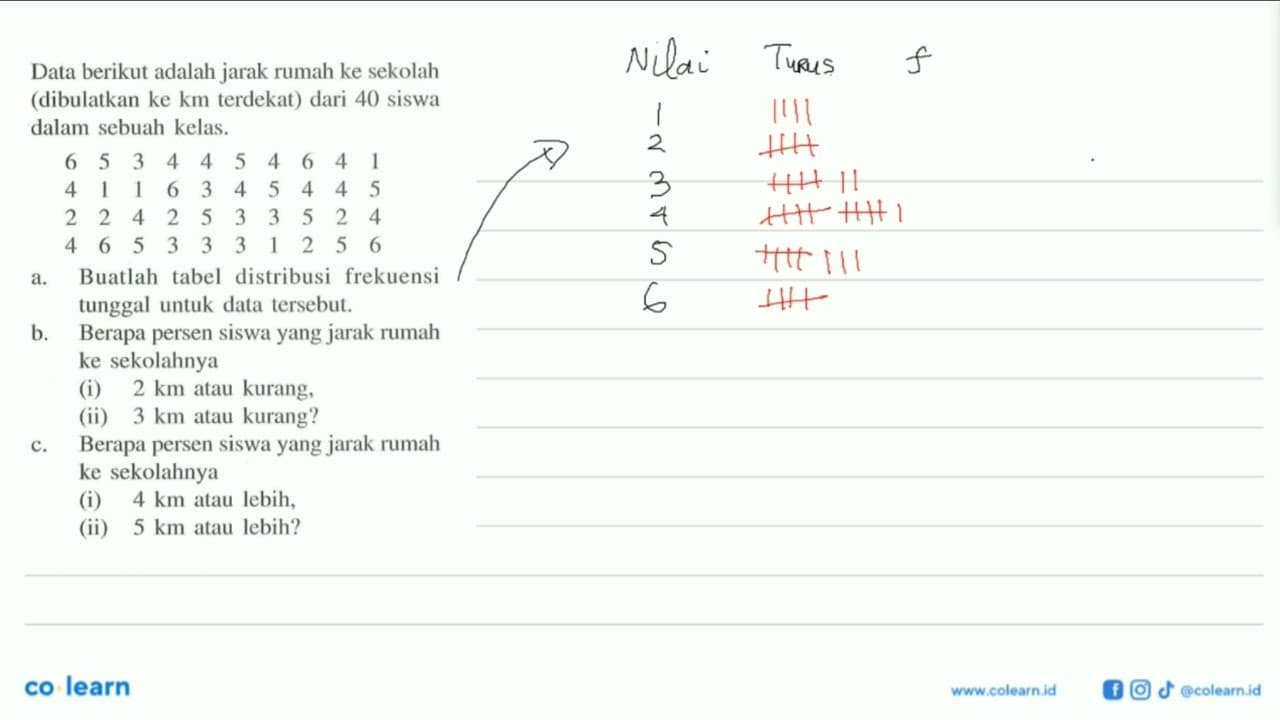 Data berikut adalah jarak rumah ke sekolah
(dibulatkan ke km terdekat) dari 40 siswa
dalam sebuah kelas.
6 5 3 4 4 5 4 6 4 1
4 1 1 6 3 4 5 4 4 5
2 2 4 2 5 3 3 5 2 4
4 6 5 3 3 3 1 2 5 6
a. Buatlah tabel distribusi frekuensi
tunggal untuk data tersebut.
b. Berapa persen siswa yang jarak rumah
ke sekolahnya
(i) 2 km atau kurang,
(ii) 3 km atau kurang?
c. Berapa persen siswa yang jarak rumah
ke sekolahnya
(i) 4 km atau lebih,
(ii) 5 km atau lebih?
Nilai Turus f
1
2
3
4
5
6
co learn
www.colearn.id
@colearn.id